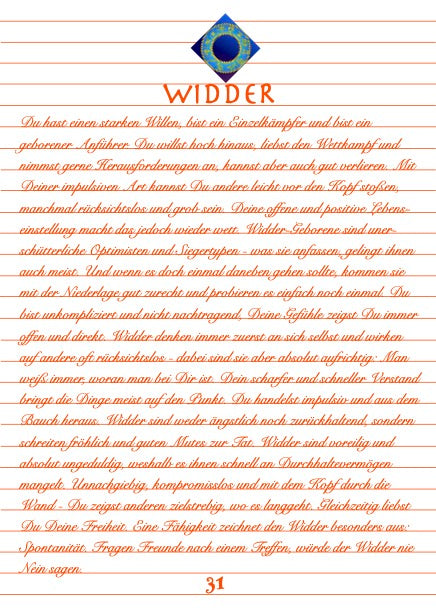 WIDDER
Du hast einen starken Willen, bist ein Einzelkämpfer und bist ein
geborener Anführer. Du willst hoch hinaus, liebst den Wettkampf und
nimmst gerne Herausforderungen an, kannst aber auch gut verlieren. Mit
Deiner impulsiven Art kannst Du andere leicht vor den Kopf stoßen,
manchmal rücksichtslos und grob sein. Deine offene und positive Lebens-
einstellung macht das jedoch wieder wett. Widder-Geborene sind uner-
schütterliche Optimisten und Siegertypen - was sie anfassen, gelingt ihnen
auch meist. Und wenn es doch einmal daneben gehen sollte, kommen sie
mit der Niederlage gut zurecht und probieren es einfach noch einmal. Du
bist unkompliziert und nicht nachtragend, Deine Gefühle zeigst Du immer
offen und direkt. Widder denken immer zuerst an sich selbst und wirken
auf andere oft rücksichtslos - dabei sind sie aber absolut aufrichtig: Man
weiß immer, woran man bei Dir ist. Dein scharfer und schneller Verstand
bringt die Dinge meist auf den Punkt. Du handelst impulsiv und aus dem
Bauch heraus. Widder sind weder ängstlich noch zurückhaltend, sondern
schreiten fröhlich und guten Mutes zur Tat. Widder sind voreilig und
absolut ungeduldig, weshalb es ihnen schnell an Durchhaltevermögen
mangelt. Unnachgiebig, kompromisslos und mit dem Kopf durch die
Wand - Du zeigst anderen zielstrebig, wo es langgeht. Gleichzeitig liebst
Du Deine Freiheit. Eine Fähigkeit zeichnet den Widder besonders aus:
Spontanität. Fragen Freunde nach einem Treffen, würde der Widder nie
Nein sagen.
31